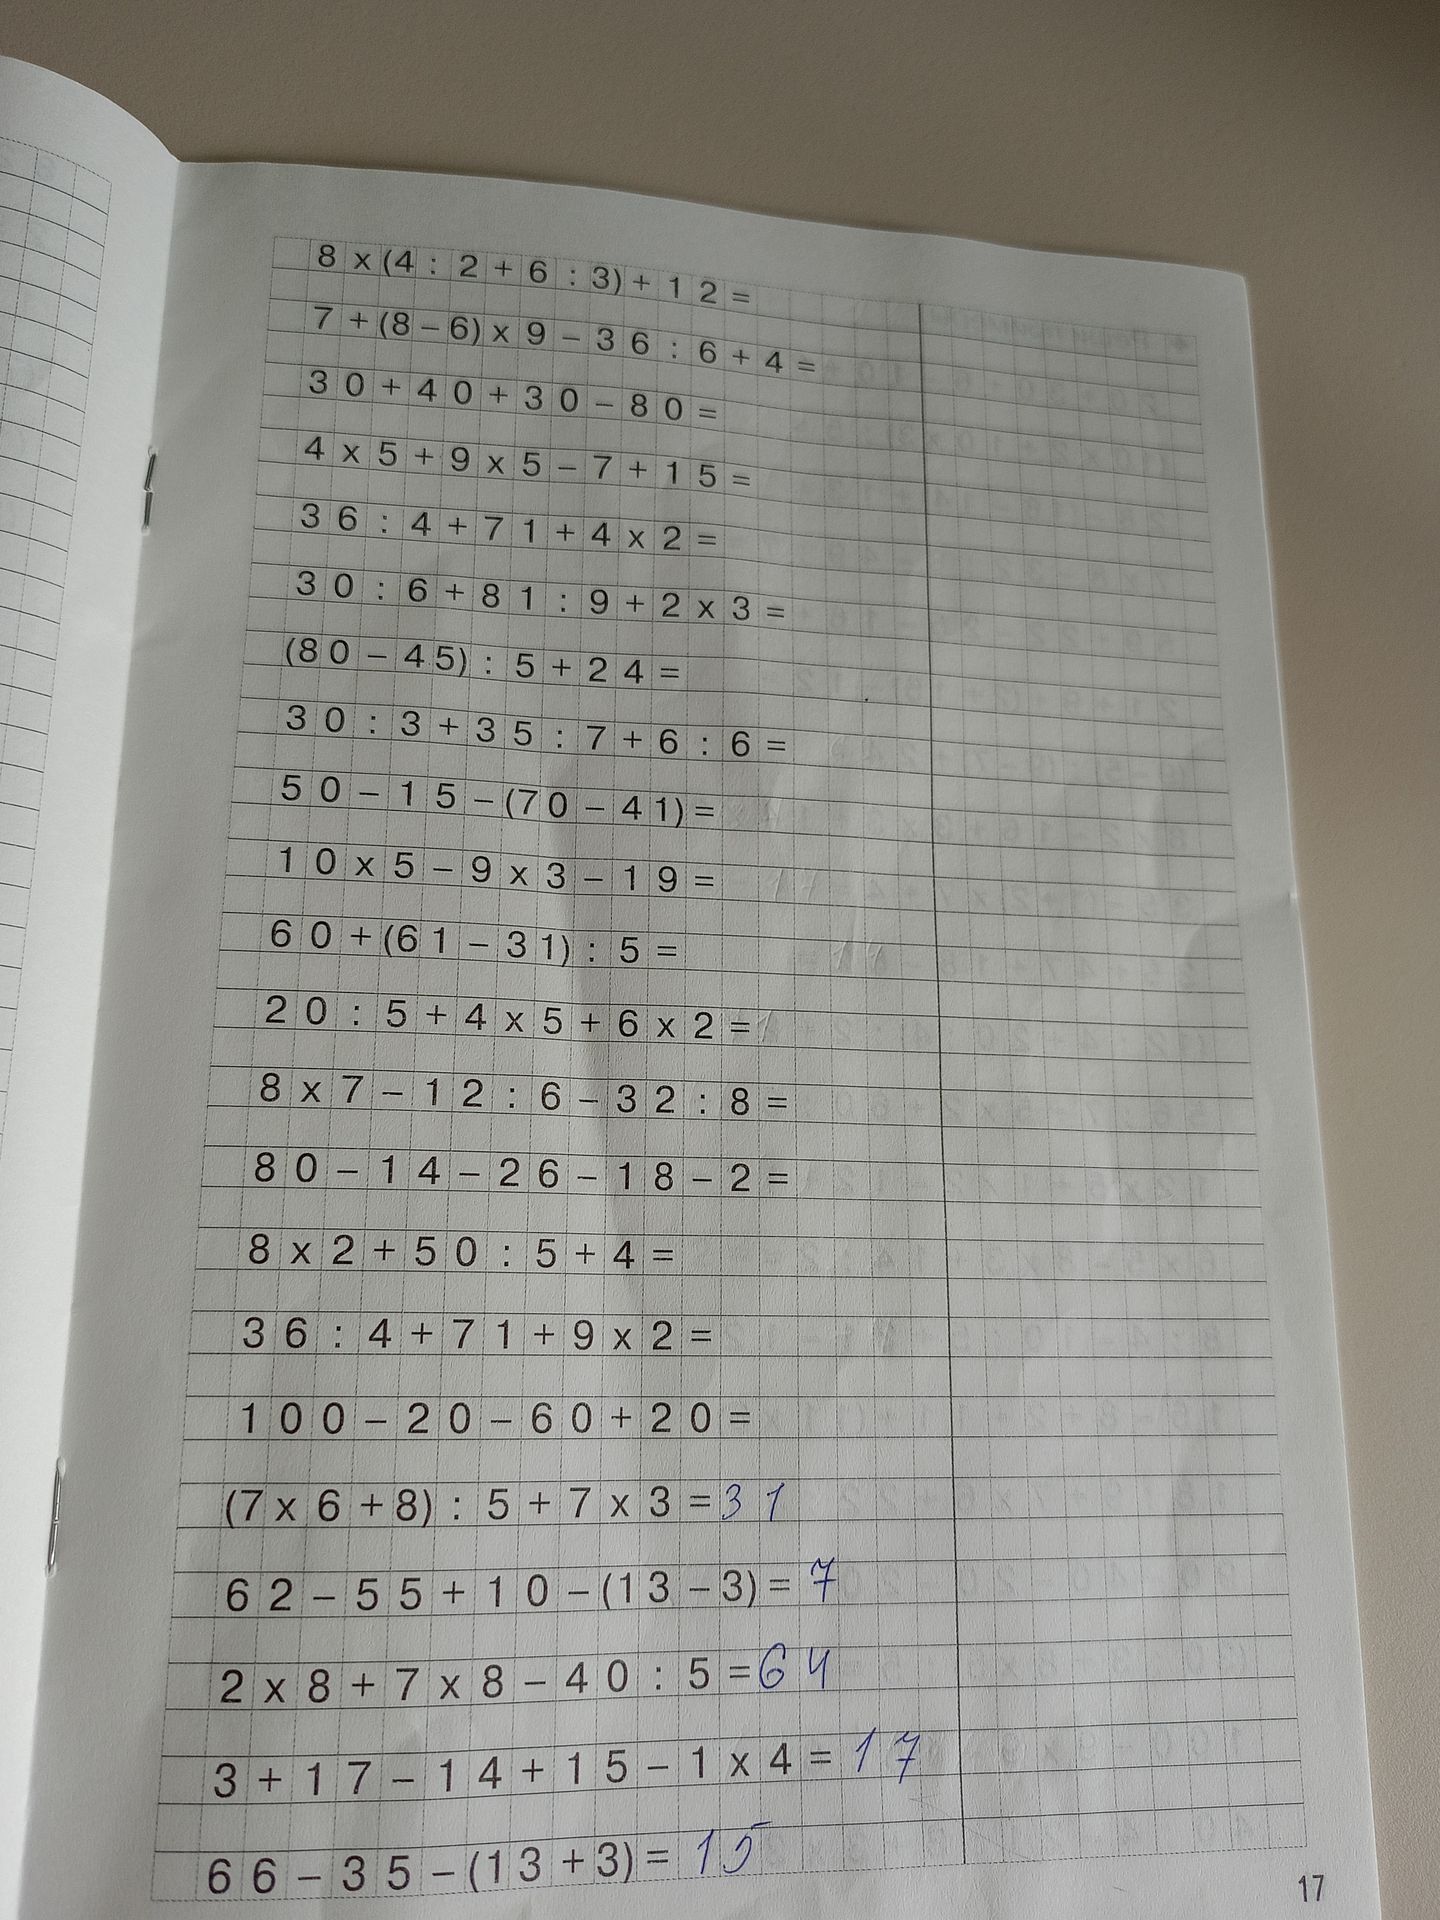 8 x (4 : 2 + 6 : 3) + 12 =
7 + (8 – 6) x 9 – 36 : 6 + 4 =
30 + 40 + 30 – 80 =
4 x 5 + 9 x 5 – 7 + 15 =
36 : 4 + 71 + 4 x 2 =
30 : 6 + 81 : 9 + 2 x 3 =
(80 – 45) : 5 + 24 =
30 : 3 + 35 : 7 + 6 : 6 =
50 – 15 – (70 – 41) =
10 x 5 – 9 x 3 – 19 =
60 + (61 – 31) : 5 =
20 : 5 + 4 x 5 + 6 x 2 =
8 x 7 – 12 : 6 – 32 : 8 =
80 – 14 – 26 – 18 – 2 =
8 x 2 + 50 : 5 + 4 =
36 : 4 + 71 + 9 x 2 =
100 – 20 – 60 + 20 =
(7 x 6 + 8) : 5 + 7 x 3 = 31
62 – 55 + 10 – (13 – 3) = 7
2 x 8 + 7 x 8 – 40 : 5 = 64
3 + 17 – 14 + 15 – 1 x 4 = 17
66 – 35 – (13 + 3) = 15
17